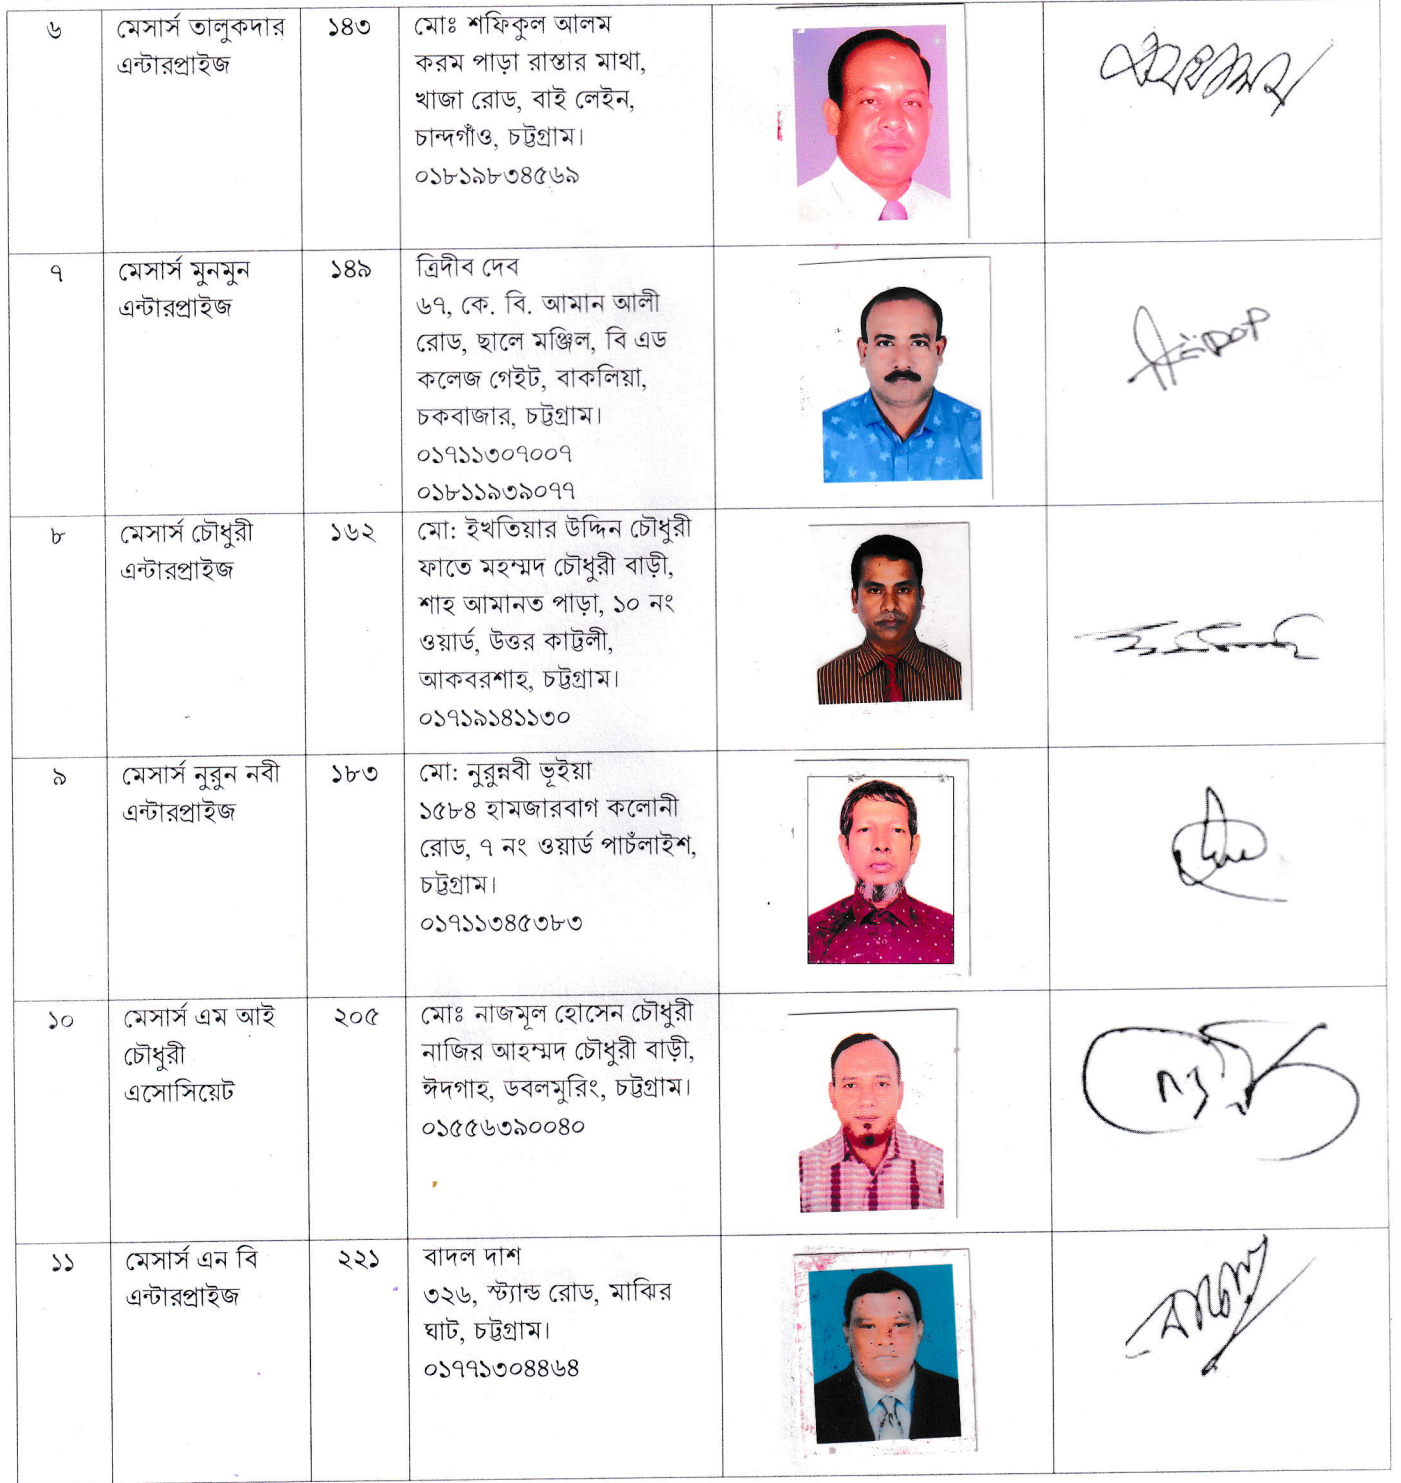 ৬
মেসার্স তালুকদার
এন্টারপ্রাইজ
১৪৩
মোঃ শফিকুল আলম
করম পাড়া রাস্তার মাথা,
খাজা রোড, বাই লেইন,
চান্দগাঁও, চট্টগ্রাম।
০১৮১৯৮৩৪৫৬৯
৭
মেসার্স মুনমুন
এন্টারপ্রাইজ
১৪৯
ত্রিদীব দেব
৬৭, কে. বি. আমান আলী
রোড, ছালে মঞ্জিল, বি এড
কলেজ গেইট, বাকলিয়া,
চকবাজার, চট্টগ্রাম।
০১৭১১৩০৭০০৭
০১৮১১৯৩৯০৭৭
৮
মেসার্স চৌধুরী
এন্টারপ্রাইজ
১৬২
মো: ইখতিয়ার উদ্দিন চৌধুরী
ফাতে মহম্মদ চৌধুরী বাড়ী,
শাহ আমানত পাড়া, ১০ নং
ওয়ার্ড, উত্তর কাট্টলী,
আকবরশাহ, চট্টগ্রাম।
০১৭১৯১৪১১৩০
৯
মেসার্স নুরুন নবী
এন্টারপ্রাইজ
১৮৩
মো: নুরুন্নবী ভূইয়া
১৫৮৪ হামজারবাগ কলোনী
রোড, ৭ নং ওয়ার্ড পাচঁলাইশ,
চট্টগ্রাম।
০১৭১১৩৪৫৩৮৩
১০
মেসার্স এম আই
চৌধুরী
এসোসিয়েট
২০৫
মোঃ নাজমূল হোসেন চৌধুরী
নাজির আহম্মদ চৌধুরী বাড়ী,
ঈদগাহ, ডবলমুরিং, চট্টগ্রাম।
০১৫৫৬৩৯০০৪০
১১
মেসার্স এন বি
এন্টারপ্রাইজ
২২১
বাদল দাশ
৩২৬, স্ট্যান্ড রোড, মাঝির
ঘাট, চট্টগ্রাম।
০১৭৭১৩০৪৪৬৪